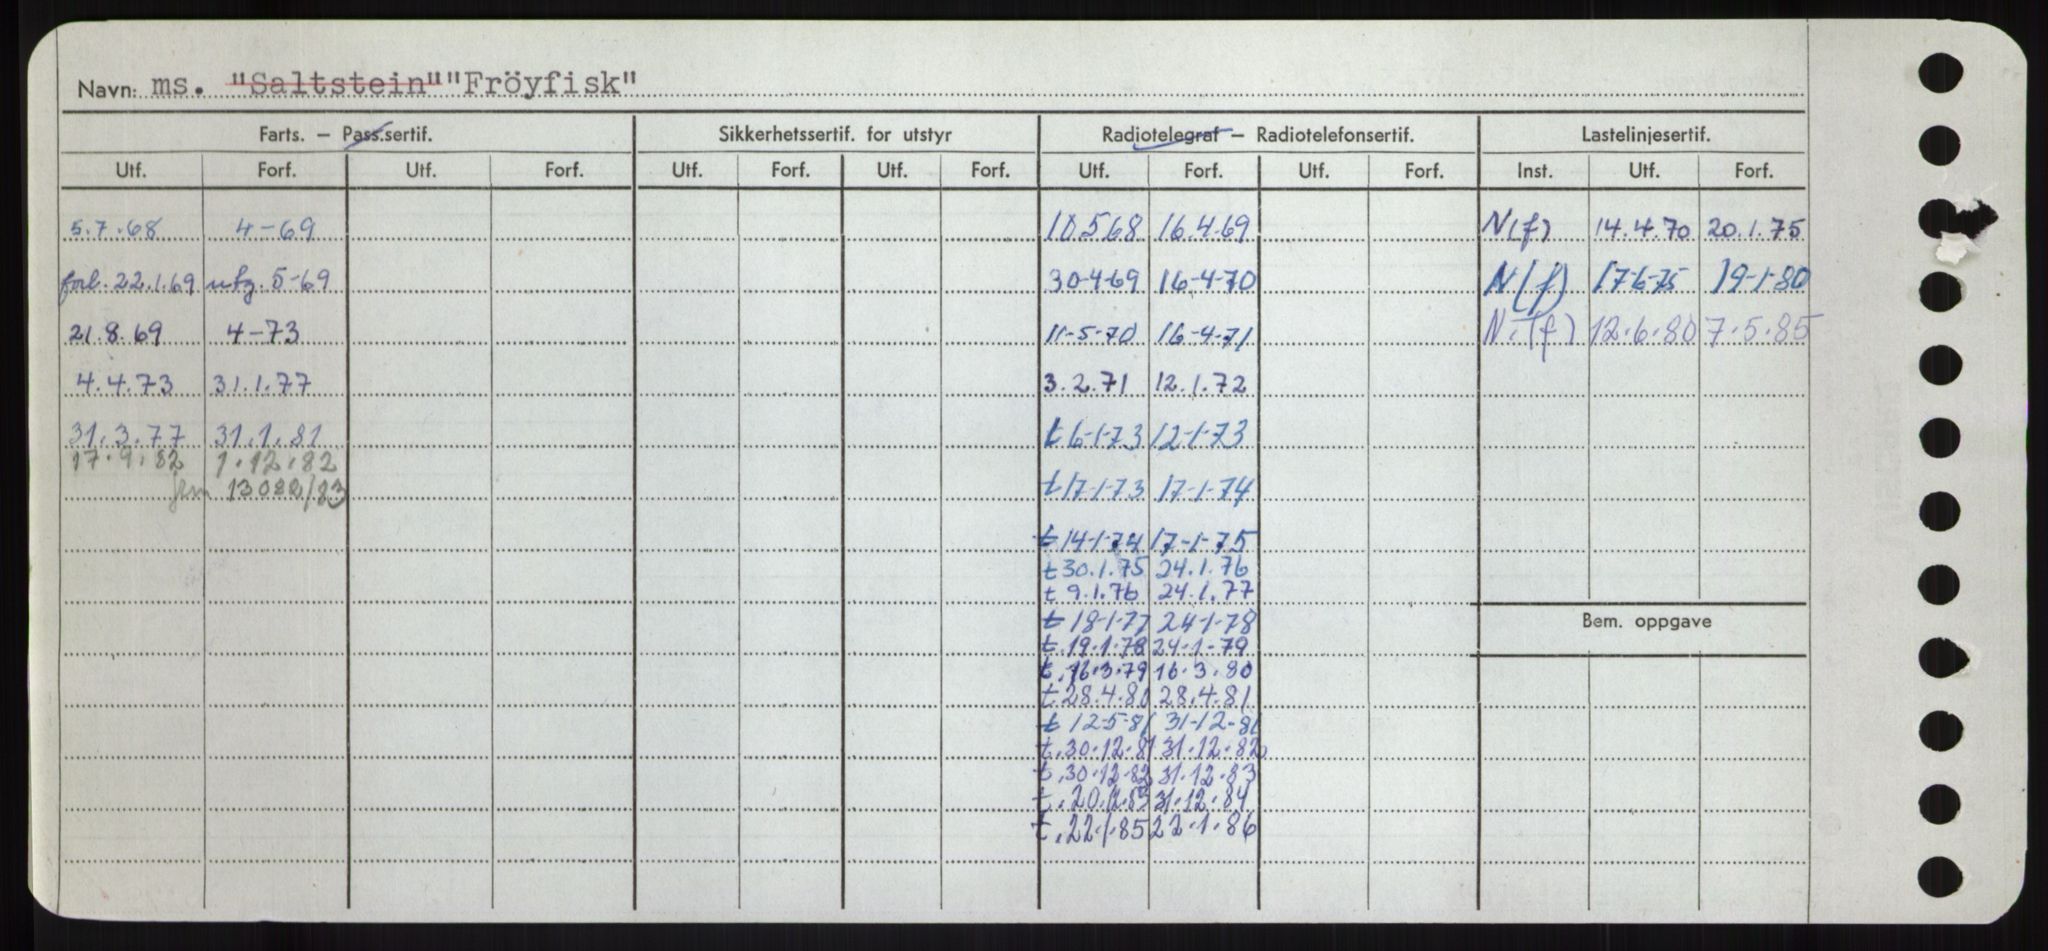 Navn: ms. "Saltstein" "Fröyfisk"
Farts. — Pass.sertif. Sikkerhetssertif. for utstyr Radiotelegraf — Radiotelefonsertif. Lastelinjesertif.
Utf. Forf. Utf. Forf. Utf. Forf. Utf. Forf. Utf. Forf. Utf. Forf. Inst. Utf. Forf.
5.7.68 4-69 10.5.68 16.4.69 N(f) 14.4.70 20.1.75
forl. 22.1.69 utg. 5-69 30-4-69 16-4-70 N(f) 17-6-75 19-1-80
21.8.69 4-73 11-5-70 16-4-71 N.(f) 12.6.80 7.5.85
4.4.73 31.1.77 3.2.71 12.1.72
31.3.77 31.1.81 t 6-1-73 12-1-73
17.9.82 1.12.82
13082/83 t 17-1-73 17-1-74
t 14-1-74 17-1-75
t 30.1.75 24.1.76
t 9.1.76 24.1.77
t 18-1-77 24-1-78
t.19.1.78 24-1-79
t.16.3.79 16.3.80
t 28.4.80 28.4.81
t 12-5-81 31-12-81
t.30.12.81 31.12.82
t.30.12.82 31.12.83
t.20.12.83 31.12.84
t.22.1.85 22.1.86
Bem. oppgave